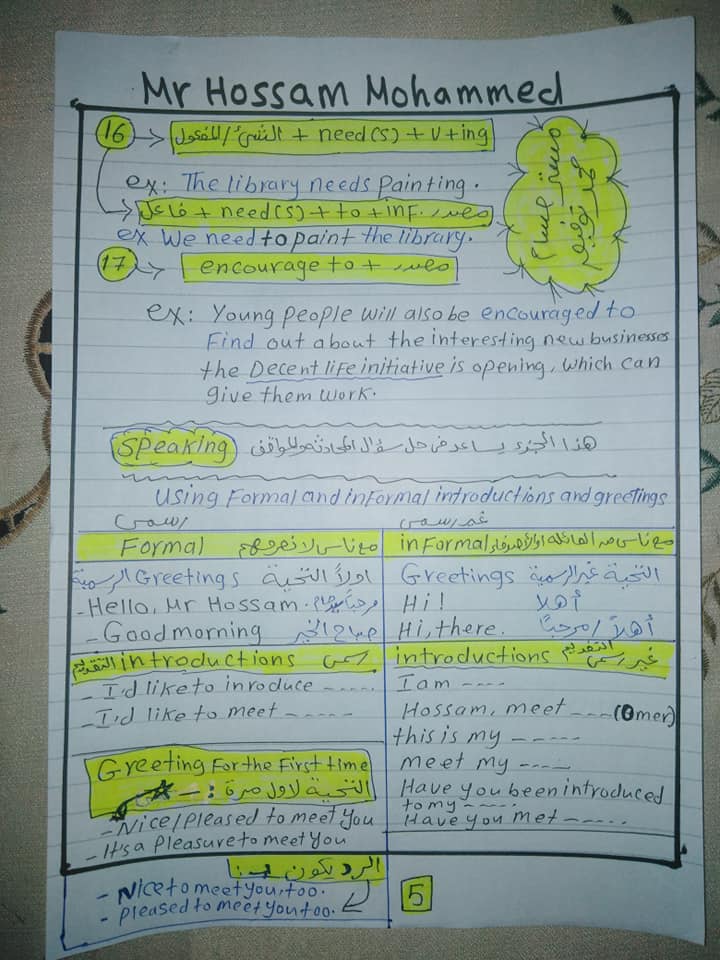 Mr Hossam Mohammed
16 → الشئ / المفعول + need(s) + v + ing
مستر حسام
ex: The library needs Painting.
→ فاعل + need(s) + to + inF. مصدر
ex We need to paint the library.
17 → encourage to + مصدر
ex: Young people will also be encouraged to
Find out about the interesting new businesses
the Decent liFe initiative is opening, which can
give them work.
Speaking هذا الجزء يساعد فى حل سؤال المحادثة والمواقف
Using Formal and inFormal introductions and greetings
رسمى
غير رسمى
Formal مع ناس لا نعرفهم
inFormal مع ناس من العائلة او الأصدقاء
Greetings اولاً التحية الرسمية
- Hello, Mr Hossam. مرحباً
- Good morning صباح الخير
Greetings التحية غير الرسمية
Hi! أهلا
Hi, there. أهلاً / مرحباً
introductions التقديم رسمى
- I,d like to inroduce -----
- I,d like to meet -----
introductions التقديم غير رسمى
I am ----
Hossam, meet ---- (Omer)
this is my -----
meet my ----
Have you been introduced
to my -----
Have you met -----
Greeting For the First time
التحية لاول مرة :-
- Nice/pleased to meet you
- It's a pleasure to meet you
الرد يكون :-
- Nice to meet you, too.
- pleased to meet you too.
5